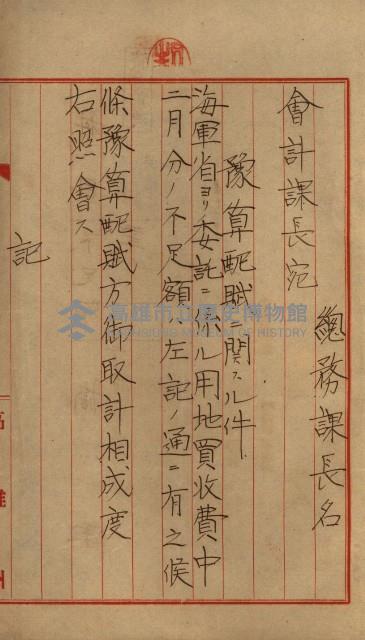 會計課長宛
總務課長名
豫算配賦ニ関スル件
海軍省ヨリ委託ニ係ル用地買收費中
二月分ノ不足額左記ノ通ニ有之候
條豫算配賦方御取計相成度
右照會ス
記
高雄州
高雄市立歷史博物館
KAOHSIUNG MUSEUM OF HISTORY